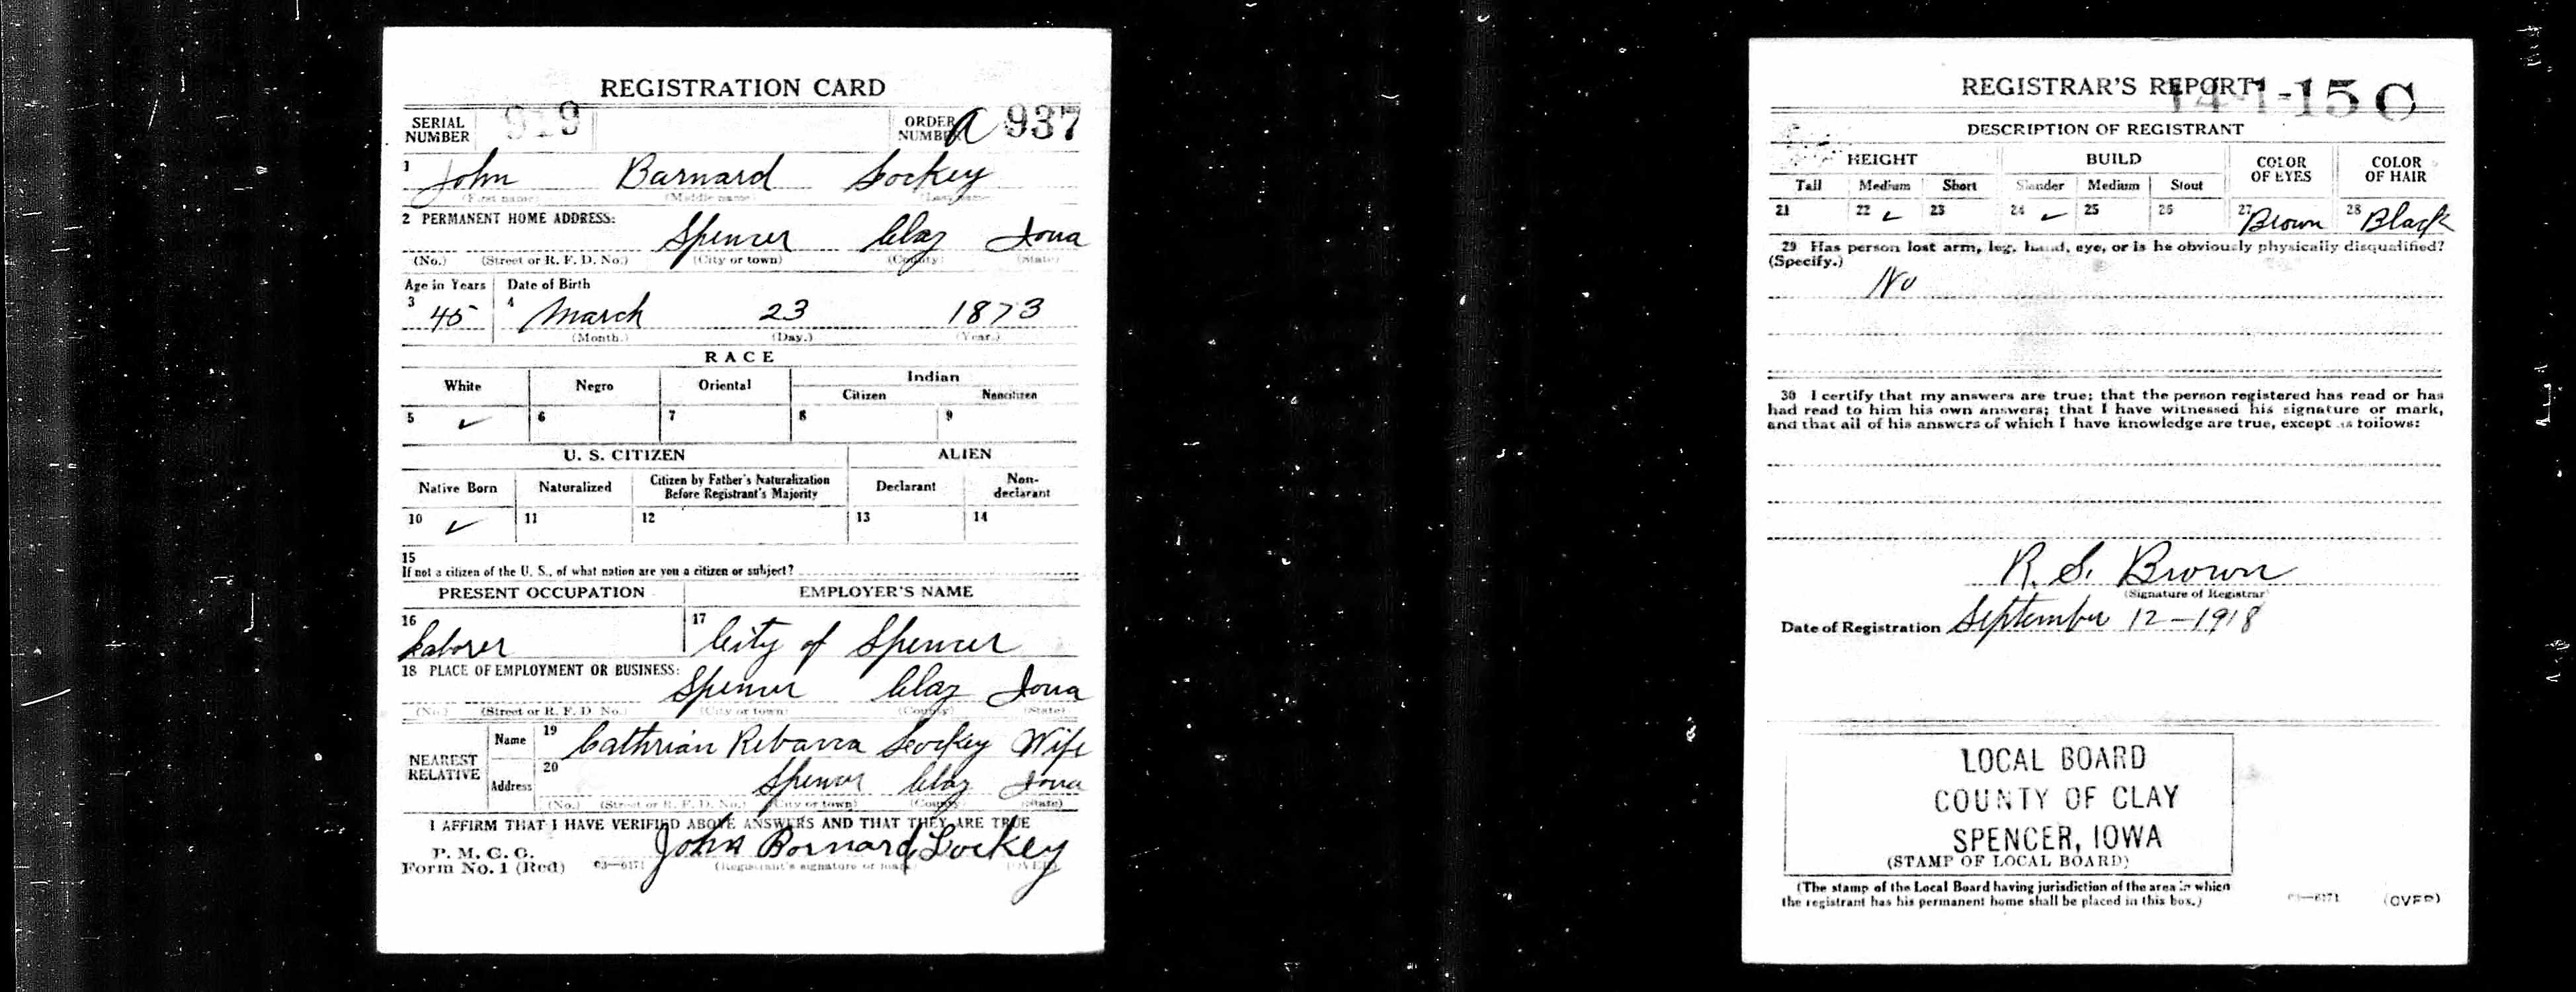 REGISTRATION CARD
SERIAL NUMBER 919 ORDER NUMBER A 937
1 John Barnard Lockey
(First name) (Middle name) (Last name)
2 PERMANENT HOME ADDRESS:
Spencer Clay Iowa
(No.) (Street or R. F. D. No.) (City or town) (County) (State)
Age in Years Date of Birth
3 45 4 March 23 1873
(Month.) (Day.) (Year.)
RACE
White Negro Oriental Indian
Citizen Noncitizen
5 ✓ 6 7 8 9
U. S. CITIZEN ALIEN
Native Born Naturalized Citizen by Father's Naturalization Before Registrant's Majority Declarant Non-declarant
10 ✓ 11 12 13 14
15
If not a citizen of the U. S., of what nation are you a citizen or subject?
PRESENT OCCUPATION EMPLOYER'S NAME
16 Laborer 17 City of Spencer
18 PLACE OF EMPLOYMENT OR BUSINESS:
Spencer Clay Iowa
(No.) (Street or R. F. D. No.) (City or town) (County) (State)
NEAREST RELATIVE
Name 19 Cathrian Rebarra Lockey Wife
Address 20 Spencer Clay Iowa
(No.) (Street or R. F. D. No.) (City or town) (County) (State)
I AFFIRM THAT I HAVE VERIFIED ABOVE ANSWERS AND THAT THEY ARE TRUE
P. M. G. O.
Form No. 1 (Red) 03—6171 John Bornard Lockey
(Registrant's signature or mark) (OVER)
REGISTRAR'S REPORT
14-1-15 C
DESCRIPTION OF REGISTRANT
HEIGHT BUILD COLOR OF EYES COLOR OF HAIR
Tall Medium Short Slender Medium Stout
21 22 ✓ 23 24 ✓ 25 26 27 Brown 28 Black
29 Has person lost arm, leg, hand, eye, or is he obviously physically disqualified?
(Specify.)
No
30 I certify that my answers are true; that the person registered has read or has
had read to him his own answers; that I have witnessed his signature or mark,
and that all of his answers of which I have knowledge are true, except as follows:
R. S. Brown
(Signature of Registrar)
Date of Registration September 12-1918
LOCAL BOARD
COUNTY OF CLAY
SPENCER, IOWA
(STAMP OF LOCAL BOARD)
(The stamp of the Local Board having jurisdiction of the area in which
the registrant has his permanent home shall be placed in this box.)
03—6171 (OVER)